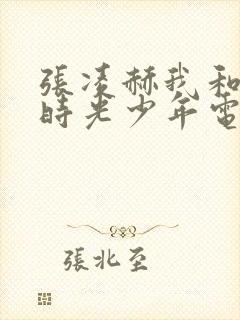 張凌赫我和
時光少年電
張北至